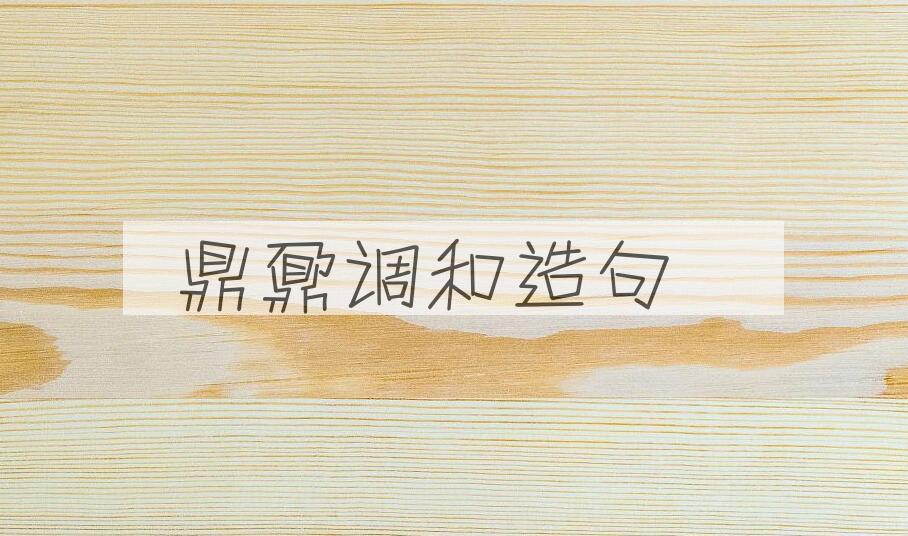 鼎鼐调和造句